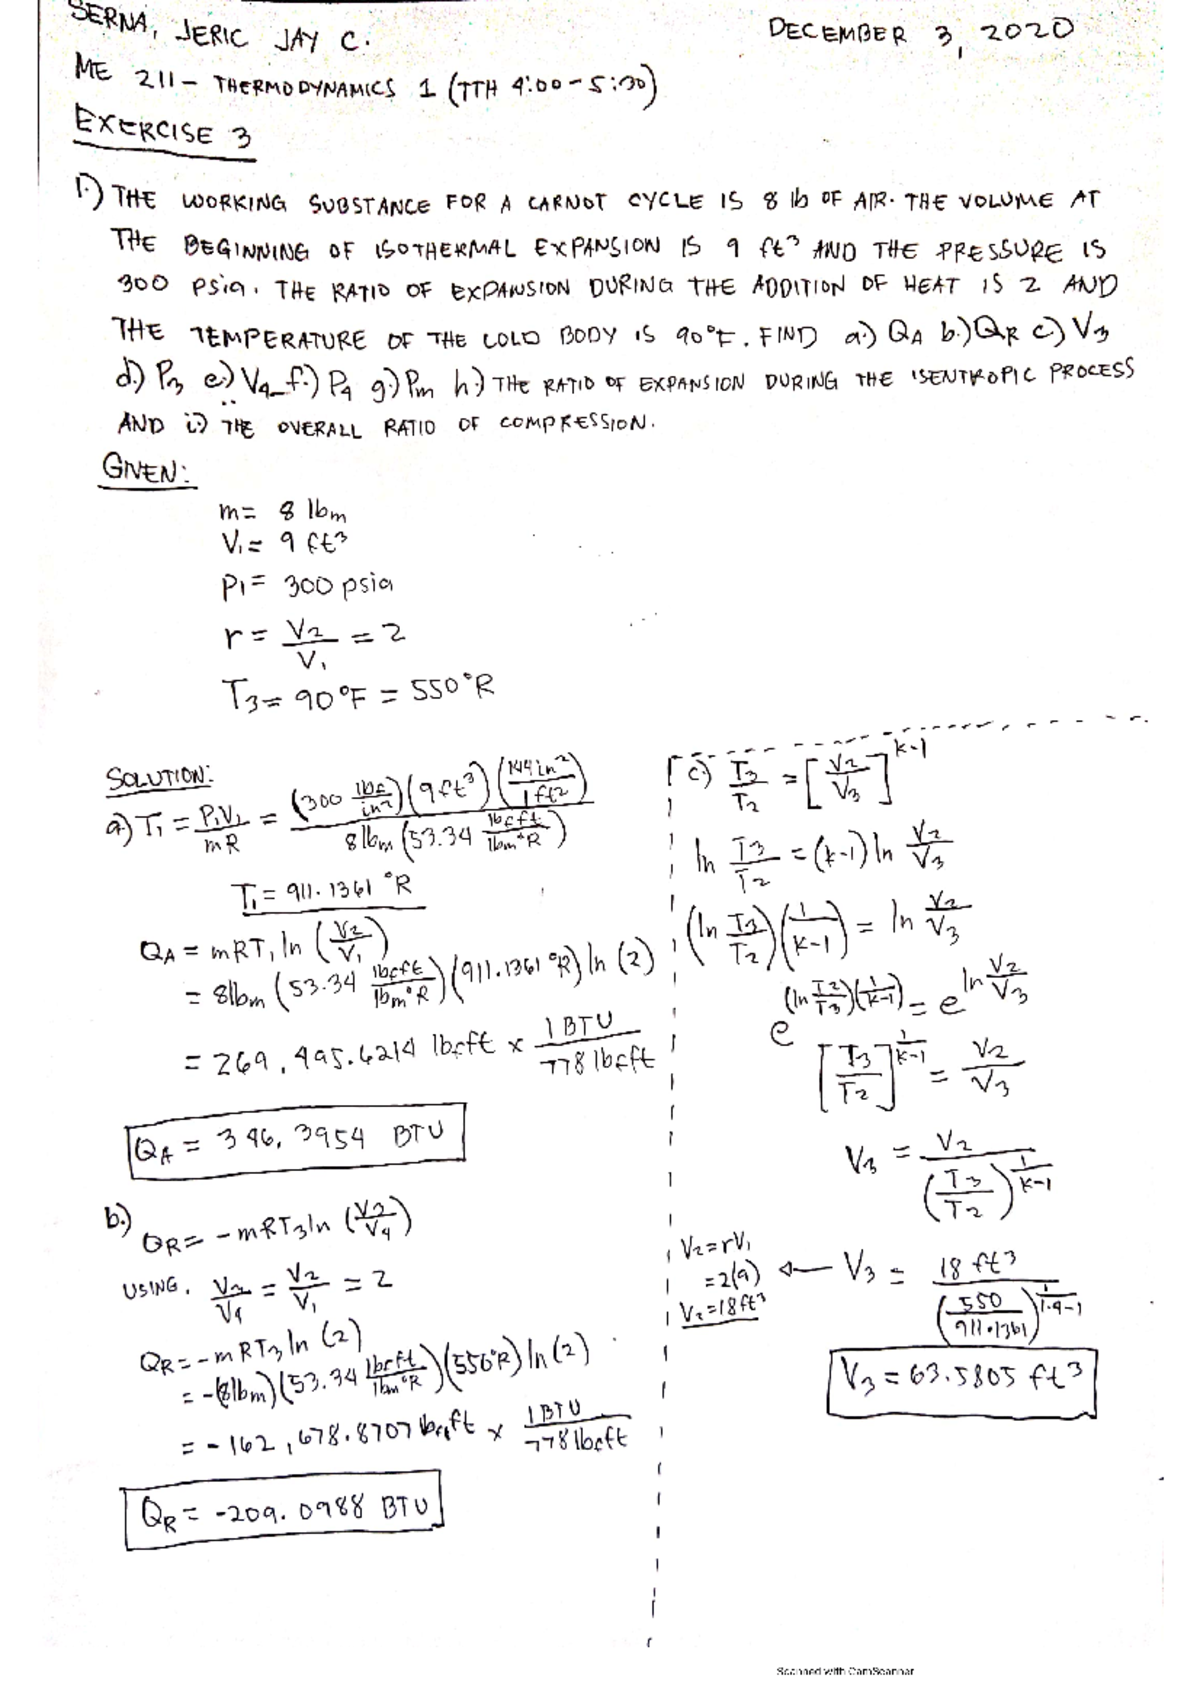 SERNA, JERIC JAY C.
DECEMBER 3, 2020
ME 211 - THERMODYNAMICS 1 (TTH 4:00-5:30)
EXERCISE 3
1.) THE WORKING SUBSTANCE FOR A CARNOT CYCLE IS 8 lb OF AIR. THE VOLUME AT
THE BEGINNING OF ISOTHERMAL EXPANSION IS 9 ft³ AND THE PRESSURE IS
300 psia. THE RATIO OF EXPANSION DURING THE ADDITION OF HEAT IS 2 AND
THE TEMPERATURE OF THE COLD BODY IS 90°F. FIND a.) QA b.) QR c.) V3
d.) P3 e.) V4 f.) P4 g.) Pm h.) THE RATIO OF EXPANSION DURING THE ISENTROPIC PROCESS
AND i.) THE OVERALL RATIO OF COMPRESSION.
GIVEN:
m = 8 lbm
V1 = 9 ft³
P1 = 300 psia
r = V2/V1 = 2
T3 = 90°F = 550°R
SOLUTION:
a.) T1 = P1V1/mR = (300 lbf/in²)(9 ft³)(144 in²/1 ft²) / 8 lbm (53.34 lbf ft/lbm°R)
T1 = 911.1361 °R
QA = mRT1 ln (V2/V1)
= 8lbm (53.34 lbf ft/lbm°R)(911.1361 °R) ln (2)
= 269,495.6214 lbf ft x 1 BTU/778 lbf ft
QA = 346.3954 BTU
b.) QR = -mRT3 ln (V3/V4)
USING, V3/V4 = V2/V1 = 2
QR = -mRT3 ln (2)
= -(8lbm)(53.34 lbf ft/lbm°R)(550°R) ln (2)
= -162,678.8707 lbf ft x 1 BTU/778 lbf ft
QR = -209.0988 BTU
c.) T3/T2 = [V2/V3]^k-1
ln T3/T2 = (k-1) ln V2/V3
(ln T3/T2)(1/k-1) = ln V2/V3
e^(ln T3/T2)(1/k-1) = e^ln V2/V3
[T3/T2]^1/k-1 = V2/V3
V3 = V2/(T3/T2)^1/k-1
V2 = rV1
= 2(9)
V2 = 18ft³
V3 = 18 ft³/(550/911.1361)^1/1.4-1
V3 = 63.5805 ft³
Scanned with CamScanner